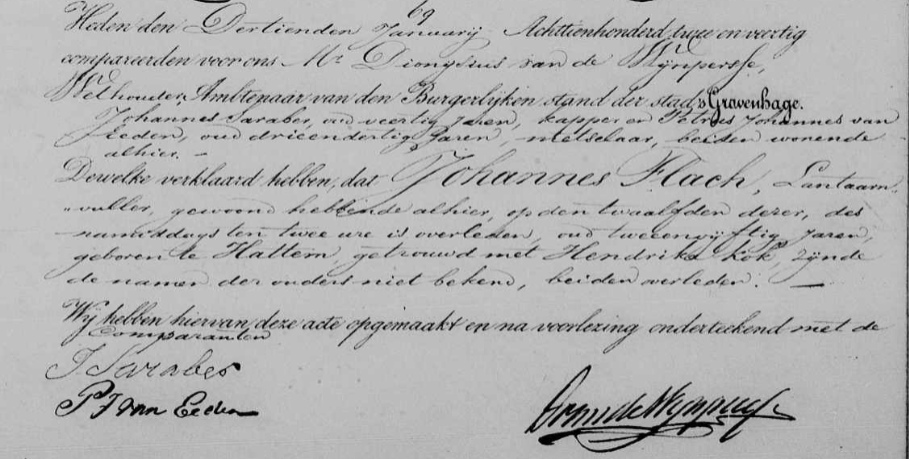 69
Heden den Dertienden January Achttienhonderd twee en veertig
compareerden voor ons Mr Dionysius van de Wijnpersse,
Wethouder, Ambtenaar van den Burgerlijken stand der stad 's Gravenhage.
Johannes Saraber, oud veertig Jaren, kapper en Petrus Johannes van
Eeden, oud drieendertig Jaren, metselaar, beiden wonende
alhier. —
Dewelke verklaard hebben, dat Johannes Flach, Lantaarn-
vuller, gewoond hebbende alhier, op den twaalfden dezer, des
namiddags ten twee ure is overleden, oud tweeenvijftig Jaren,
geboren te Hattem, getrouwd met Hendrika Kok, zijnde
de namen der ouders niet bekend, beiden overleden. —
Wij hebben hiervan deze acte opgemaakt en na voorlezing onderteekend met de
Comparanten
J Saraber
P J van Eeden